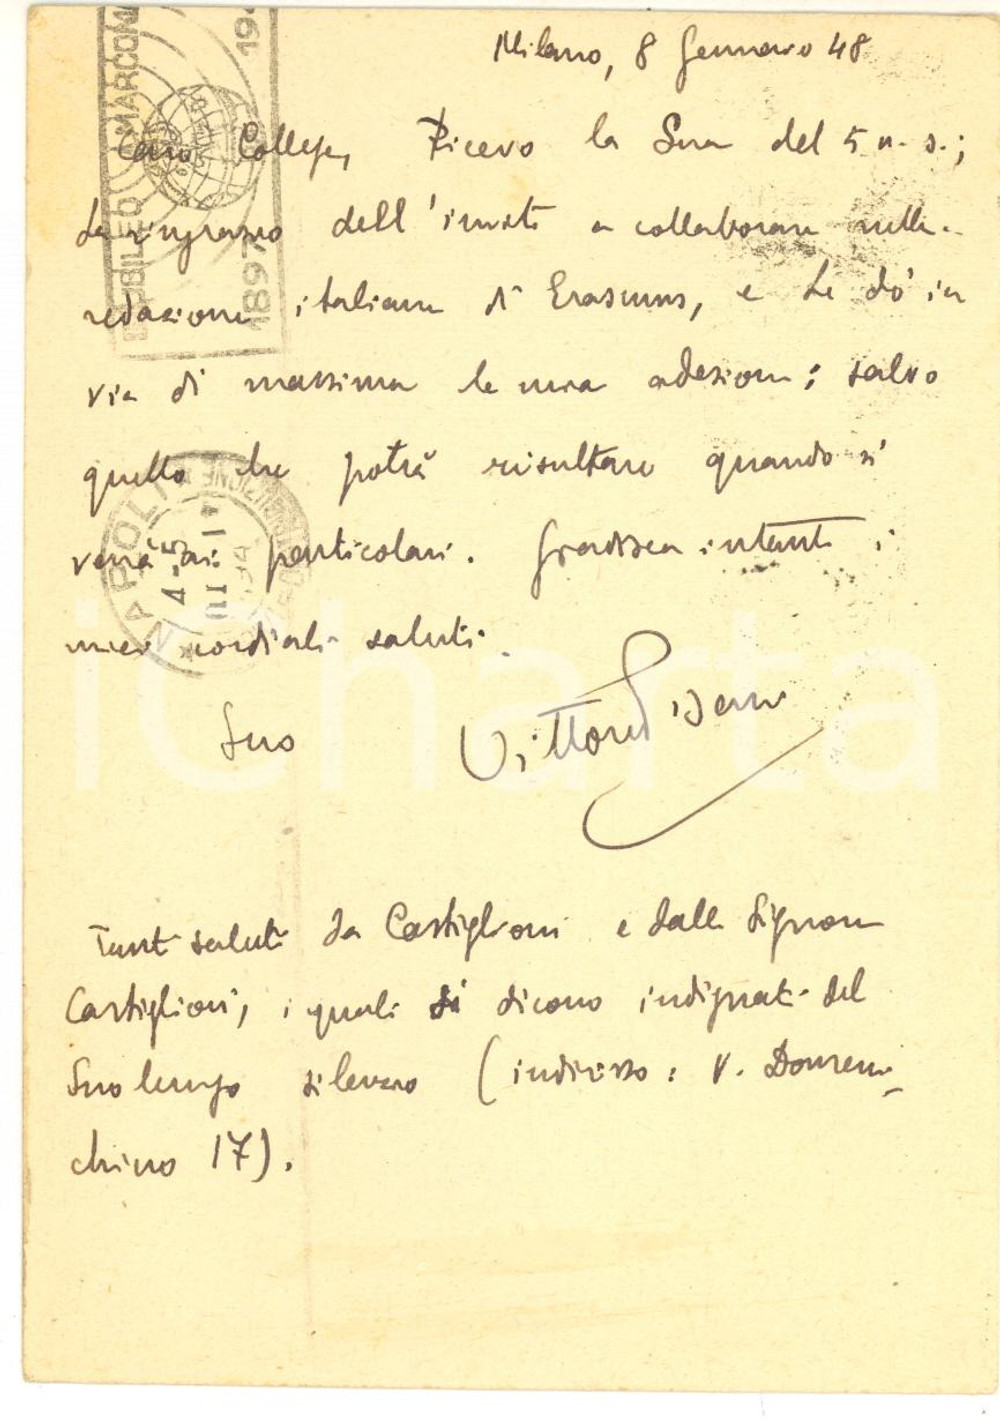 Milano, 8 Gennaio 48
Caro Collega, Ricevo la Sua del 5 u. s.;
La ringrazio dell'invito a collaborare nella
redazione italiana di Erasmus, e Le dò in
via di massima la mia adesione; salvo
quello che potrà risultare quando si
verrà ai particolari. Gradisca intanto i
miei cordiali saluti.
Suo Vittore Pisani
Tanti saluti da Castiglioni e dalla Signora
Castiglioni, i quali si dicono indignati del
Suo lungo silenzio (indirizzo: V. Domeni-
chino 17).
GIUBILEO MARCONI
1897
NAPOLI
icharta